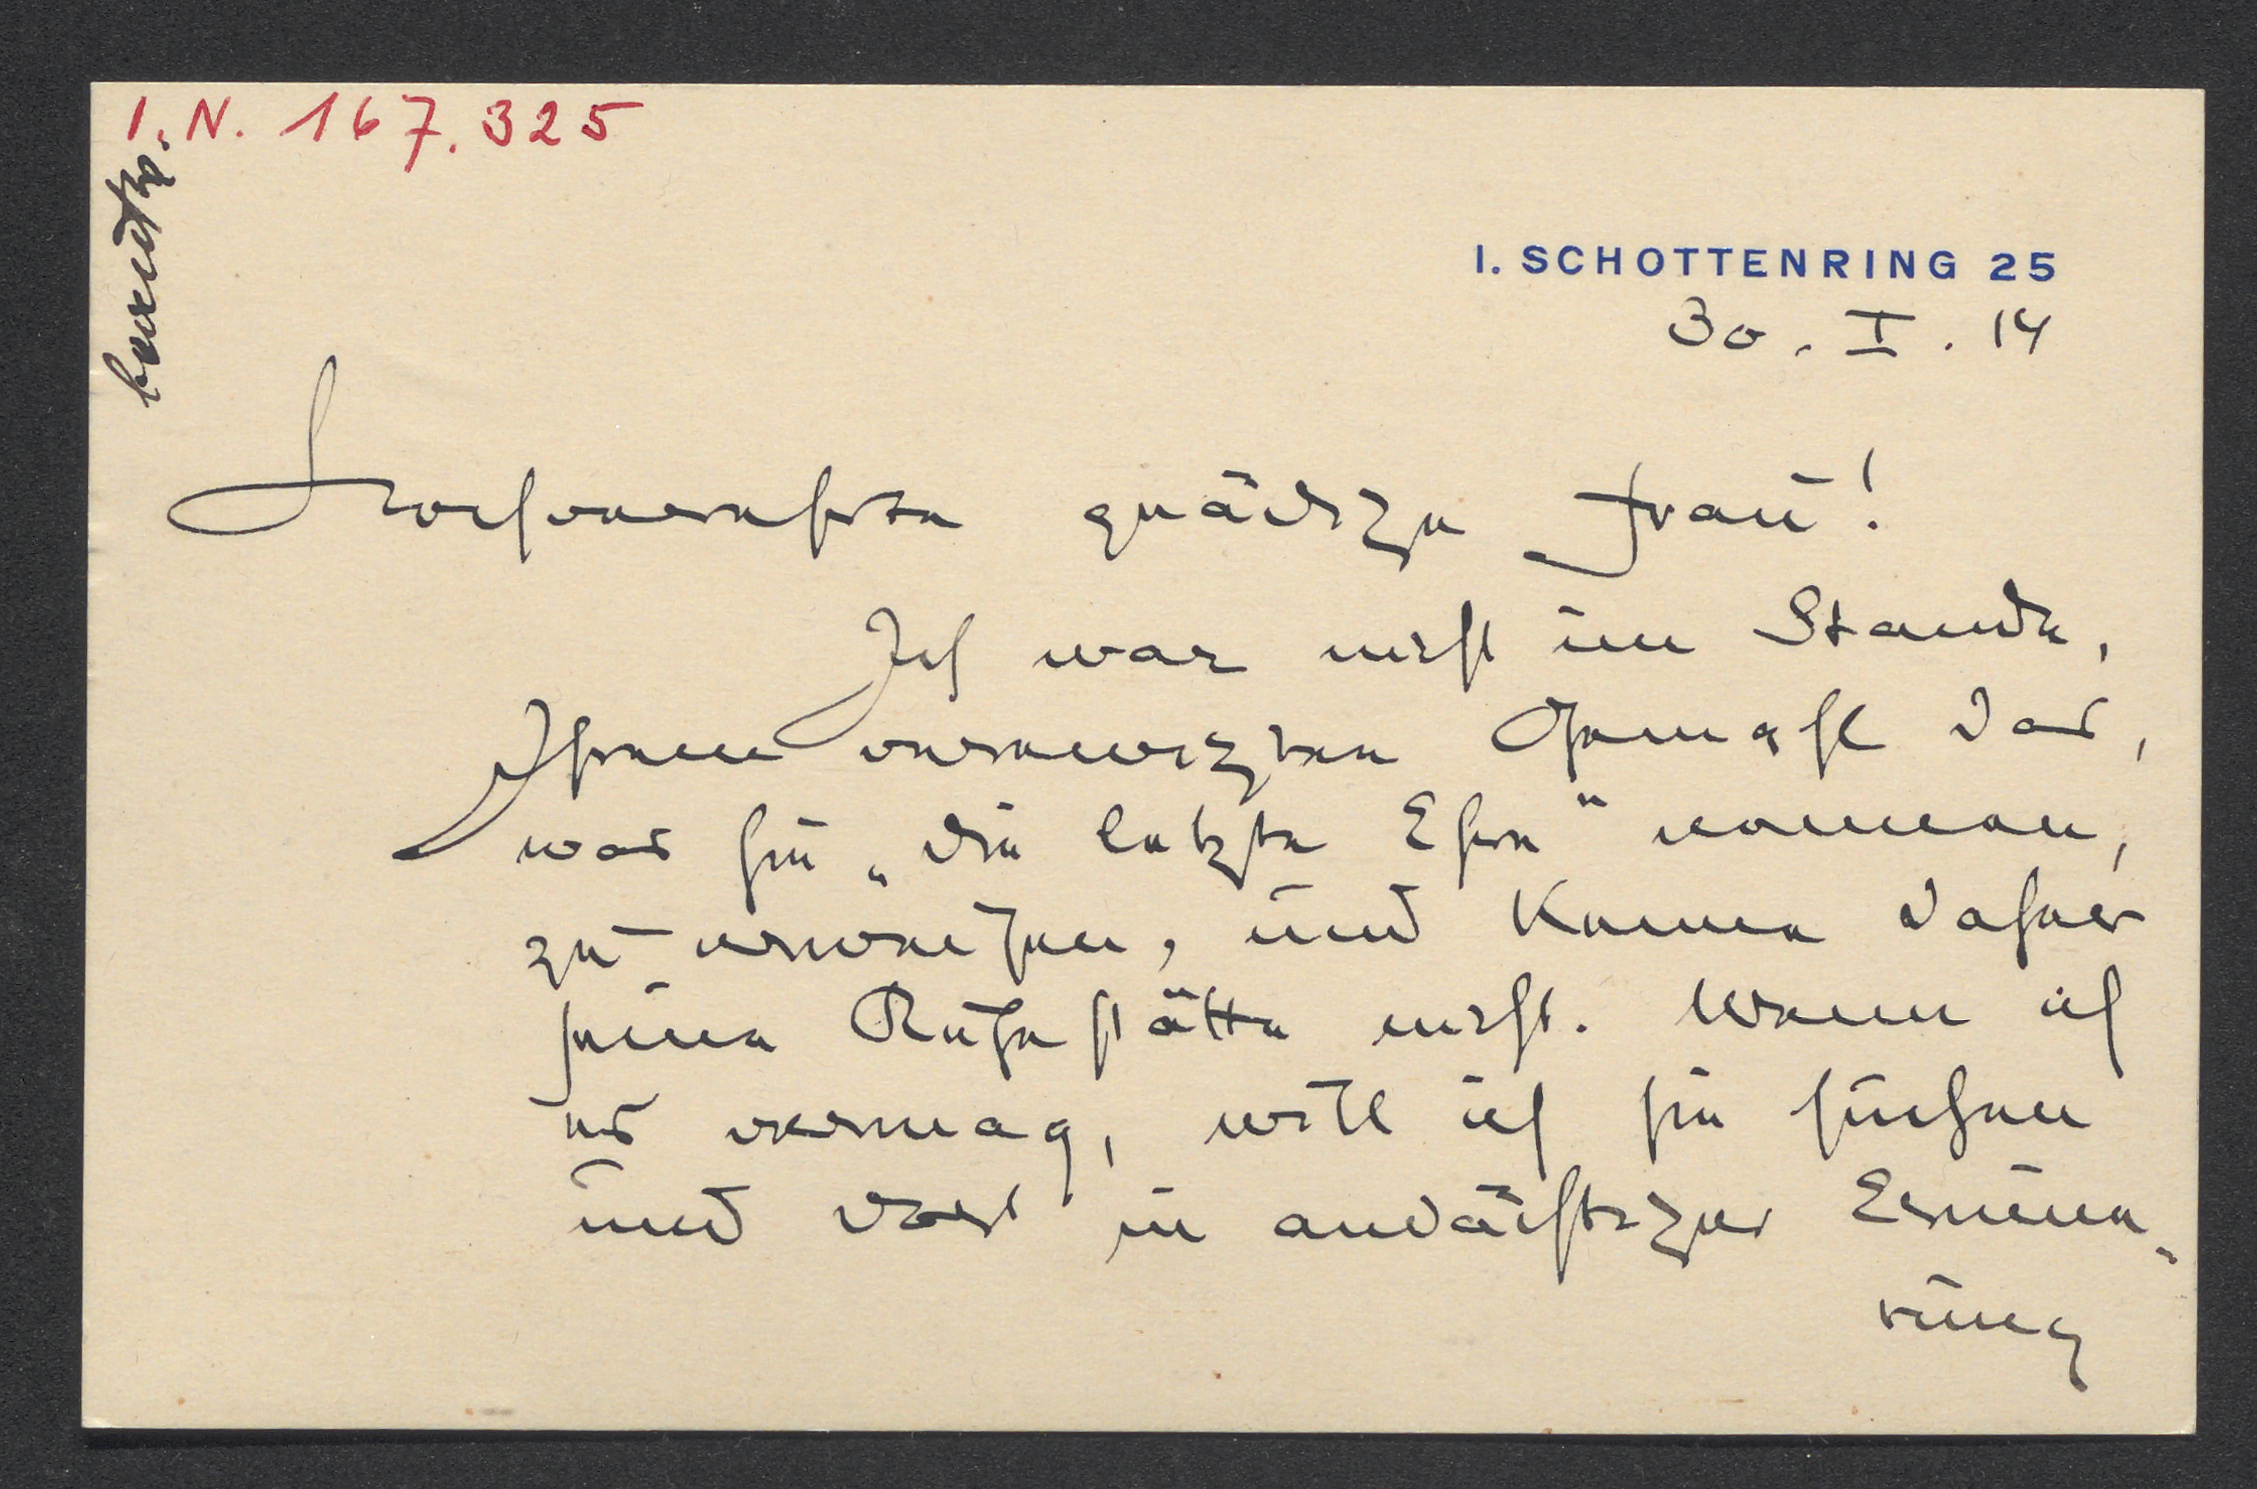 I. N. 167.325
I. SCHOTTENRING 25
30. I. 14
Hochverehrte gnädige Frau!
Ich war nicht im Stande,
Ihrem verewigten Gemahl das,
was sie „die letzte Ehre" nennen,
zu erweisen, und kenne daher
seine Ruhestätte nicht. Wenn ich
es vermag, will ich sie suchen
und dort in andächtiger Erinne„
rung